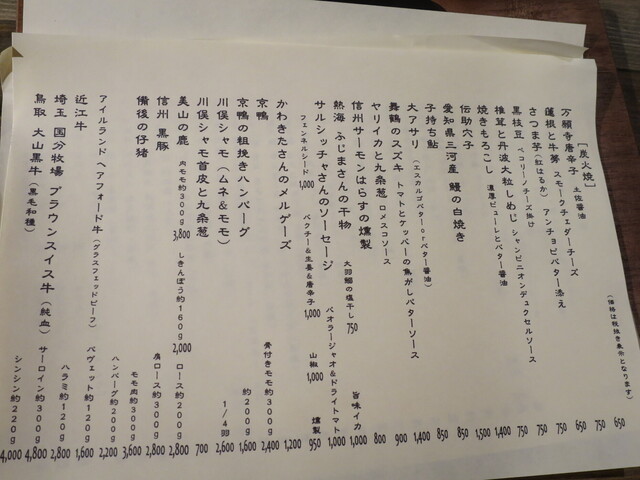 (価格は税抜き表示となります)
[炭火焼]
万願寺唐辛子 土佐醤油 650
蓮根と牛蒡 スモークチェダーチーズ 750
さつま芋(紅はるか) アンチョビバター添え 650
黒枝豆 ペコリーノチーズ掛け 650
椎茸と丹波大粒しめじ シャンピニオンデュクセルソース 750
焼きもろこし 濃厚ピューレとバター醤油 750
伝助穴子 1,400
愛知県三河産 鰻の白焼き 1,500
子持ち鮎 850
大アサリ (エスカルゴバターorバター醤油) 850
舞鶴のスズキ トマトとケッパーの焦がしバターソース 1,400
ヤリイカと九条葱 ロメスコソース 900
信州サーモンはらすの燻製 800
熱海 ふじまさんの干物 大羽鰯の塩干し 750 旨味イカ 1,000
サルシッチャさんのソーセージ パオラージャオ&ドライトマト 1,000
フェンネルシード 1,000 パクチー&生姜&唐辛子 1,000 山椒 1,000 燻製 950
かわきたさんのメルゲーズ 1,200
京鴨 骨付きモモ約300g 2,400
京鴨の粗挽きハンバーグ 約200g 1,600
川俣シャモ(ムネ&モモ) 1/4羽 2,600
川俣シャモ首皮と九条葱 700
美山の鹿 内モモ約300g 3,800 しきんぼう約160g 2,000 ロース約200g 2,800
信州 黒豚 肩ロース約300g 2,800
備後の仔猪 モモ肉約300g 3,600
アイルランド ヘアフォード牛(グラスフェッドビーフ) ハンバーグ約200g 2,200
近江牛 バヴェット約120g 1,600
ハラミ約120g 2,800
埼玉 国分牧場 ブラウンスイス牛(純血) サーロイン約300g 4,800
鳥取 大山黒牛(黒毛和種) シンシン約220g 4,000